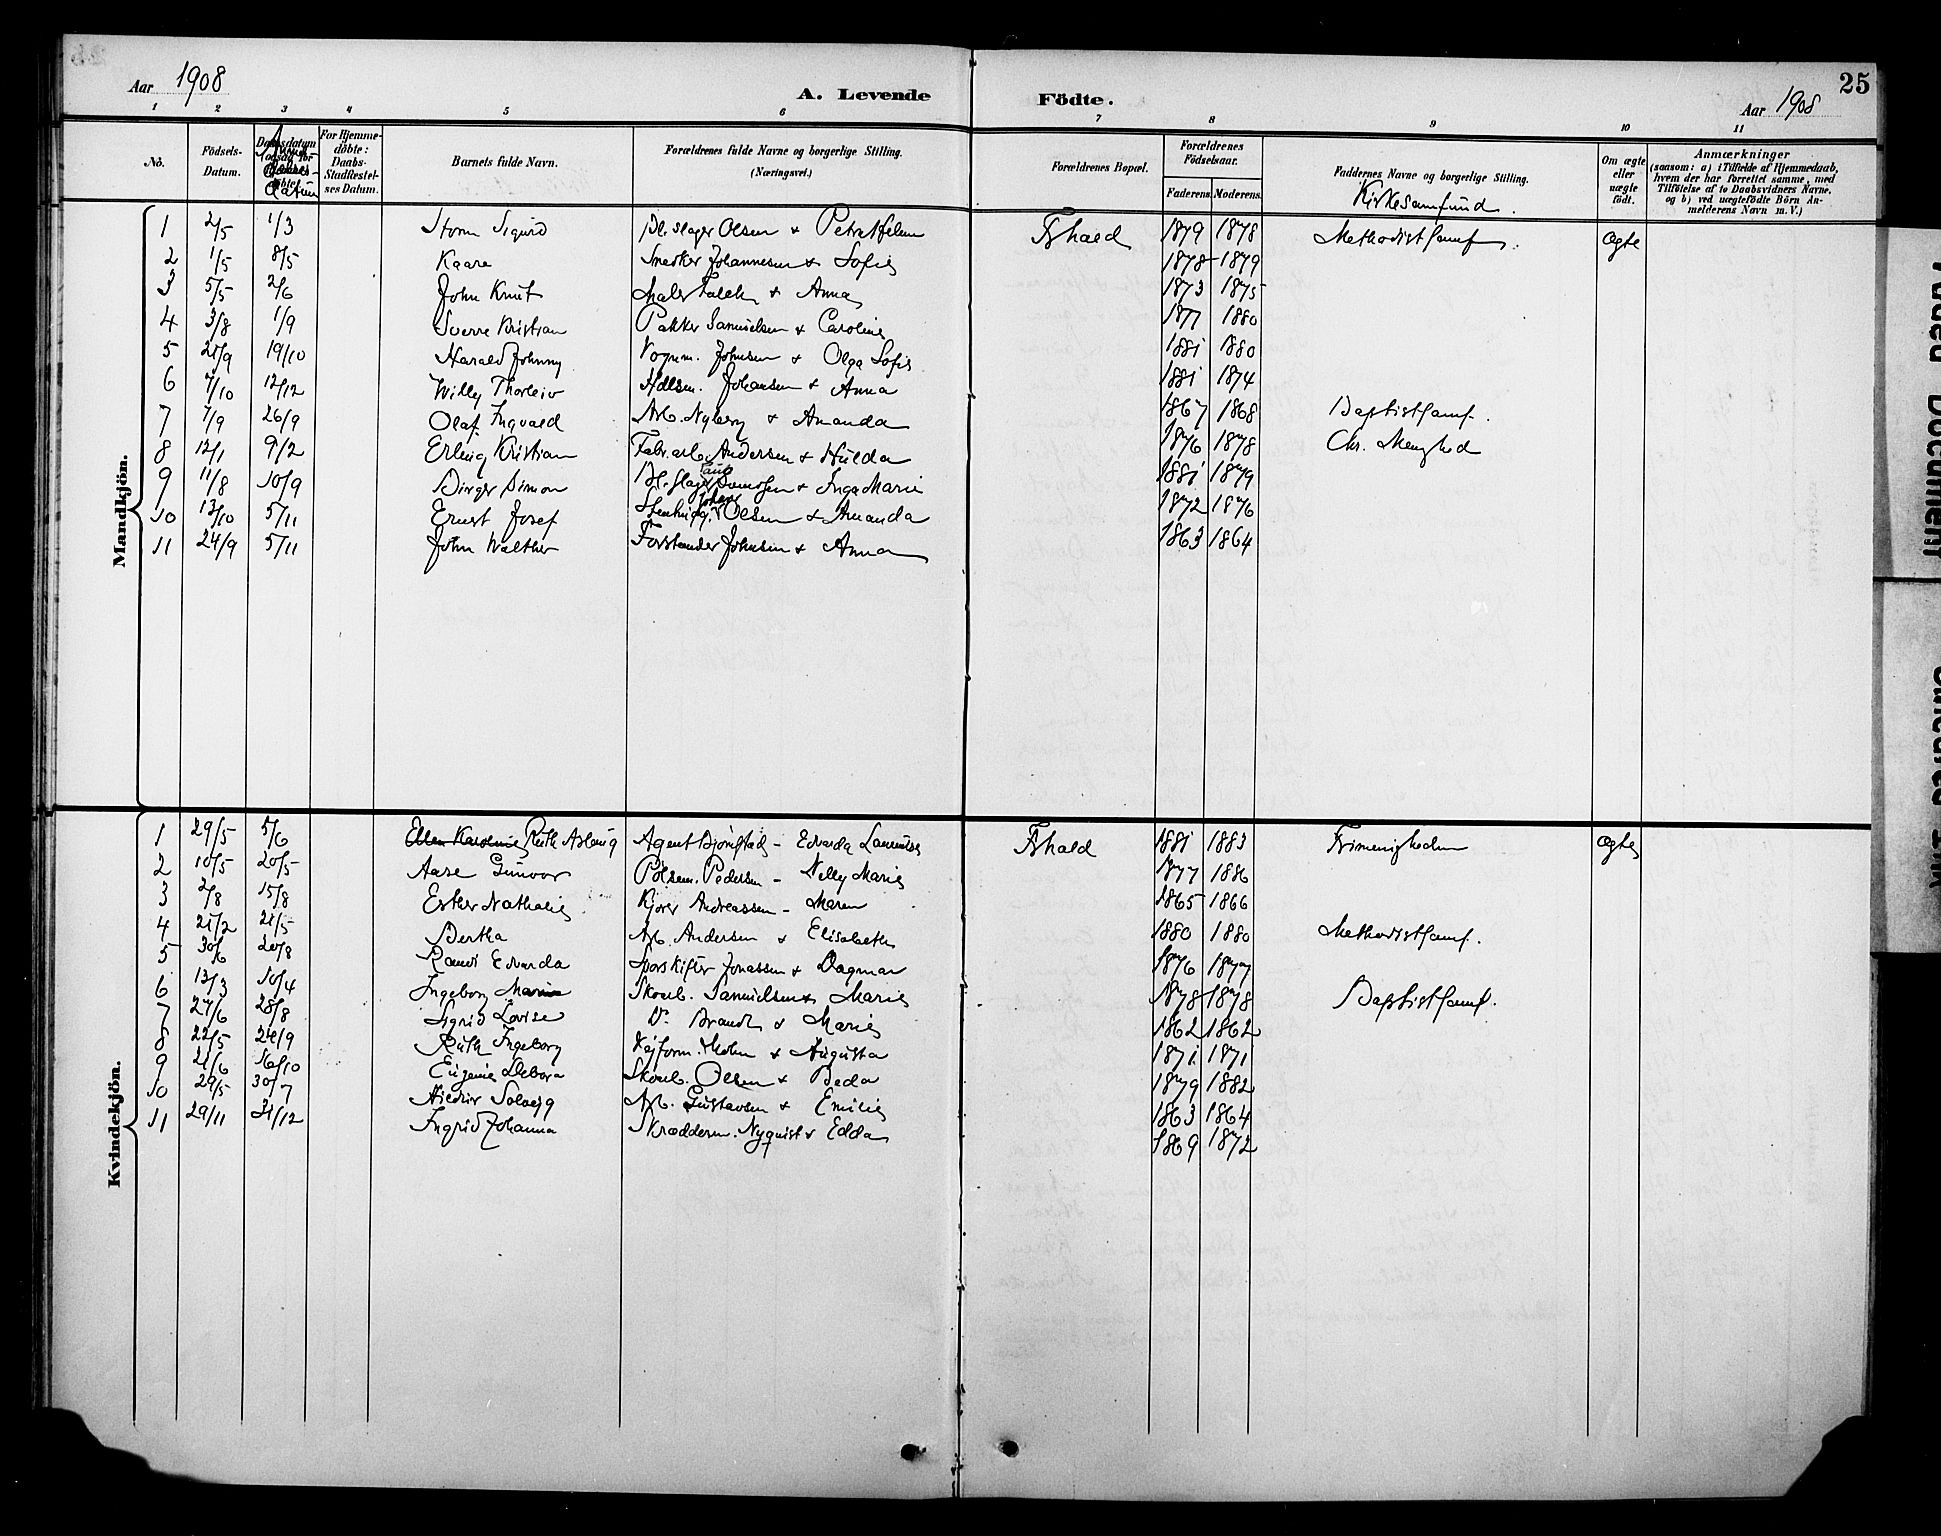 Aar 1908
A. Levende
Födte.
Aar 1908
25
1 2 3 4 5 6 7 8 9 10 11
No.
Födsels-Datum.
Daabsdatum
Datum
For Hjemmedöbte: Daabs-Stadfæstelses Datum.
Barnets fulde Navn.
Forældrenes fulde Navne og borgerlige Stilling. (Næringsvei.)
Forældrenes Bopæl.
Forældrenes Födselsaar.
Faderens. Moderens.
Faddernes Navne og borgerlige Stilling.
Kirkesamfund.
Om ægte eller uægte födt.
Anmærkninger
(saasom: a) i Tilfælde af Hjemmedaab, hvem der har forrettet samme, med Tilföielse af to Daabsvidners Navne, og b) ved uægtefödte Börn Anmelderens Navn m. V.)
Mandkjön.
1 2/5 1/3 Storm Sigurd Bl. slager Olsen & Fr.hald 1879 1878 Methodistsamf. ægte
2 1/5 8/5 Kaare Snedker Johannesen & Sofie 1878 1879
3 5/5 2/6 John Knut Maler Falch & Anna 1873 1875
4 3/8 1/9 Sverre Kristian Pakker Samuelsen & Caroline 1877 1880
5 21/9 19/10 Harald Johnny Vognm. Johnsen & Olga Sofie 1881 1880
6 7/10 12/12 Willy Thorleiv Hdlsm. Johansen & Anna 1881 1874
7 7/9 26/9 Olaf Ingvald Arb. Nyberg & Amanda 1867 1868 Baptistsamf.
8 12/1 9/2 Erling Kristian Fabr.arb. Andersen & Hulda 1876 1878 Chr. Menighed
9 11/8 10/9 Birger Simon Bl. slager & Inga Marie 1881 1879
10 13/10 5/11 Ernst Josef Stenhug. Johan Olsen & Amanda 1872 1876
11 24/9 5/11 John Walther Forstander Johnsen & Anna 1863 1864
Kvindekjön.
1 29/5 5/6 Ellen Karoline Ruth Aslaug Agent Björnstad - Edvarda Laurentze Fr.hald 1881 1883 Frimenigheden ægte
2 10/5 20/5 Aase Gunvor Pölsem. Pedersen - Nelly Marie 1877 1886
3 2/8 15/8 Esther Nathalie Kjörer Andreassen - Maren 1865 1866
4 21/2 21/5 Bertha Arb. Andersen & Elisabeth 1880 1880 Methodistsamf.
5 30/6 20/8 Randi Edvarda Sporskifter Jonassen & Dagmar 1876 1877
6 13/3 10/4 Ingeborg Marie Skomb. Samuelsen & Marie 1878 1878 Baptistsamf.
7 27/6 28/8 Sigrid Lovise Do. Brandt & Marie 1862 1862
8 22/5 24/9 Ruth Ingeborg Vejform. Holm & Augusta 1871 1871
9 21/6 16/10 Eugenie Debora Skomb. Olsen & Beda 1879 1882
10 29/5 30/7 Hildur Solveig Arb. Gustavsen & Emilie 1863 1864
11 29/11 31/12 Ingrid Johanna Skrædderm. Nyquist & Edda 1869 1872